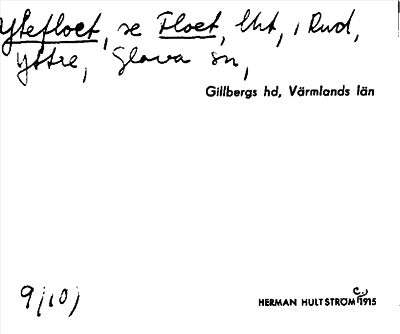 Ytefloet, se Floet, lht, i Rud,
Yttre, Glava sn,
Gillbergs hd, Värmlands län
9/10)
HERMAN HULTSTRÖM C. 1915